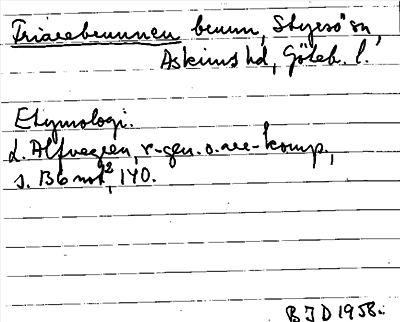 Friarebrunnen brunn, Styrsö sn,
Askims hd, Göteb. l.
Etymologi.
L. Alfvegren, r-gen. o. are-komp.,
s. 136 not 2, 140.
B J D 1958.